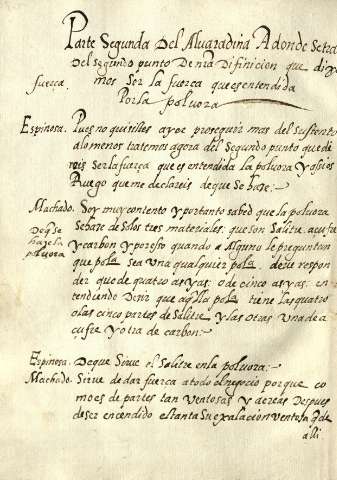 Parte Segunda Del Alvaradina Adonde Setra
Del segundo punto De nra Difinicion que dixi
fuerça. mos Ser la fuerça que es entendida
Por la polvora
Espinosa. Pues no quisistes ayoc proseguir mas del sustento
alomenos tratemos agora del Segundo punto que di
xois Ser la fuerça que es entendida la polvora y assi os
Ruego que me declareis de que Se haze:~
Machado. Soy muy contento y portanto sabed que la polvora
De q se Sehaze de solos tres materiales. que son Salitre, açufre
haze la y carbon y por esso quando a Alguno le preguntan
polvora que polª sea una qualquier polª. deve respon
der que de quatro as yas. o de cinco as yas. en
tendiendo Dezir que aqlla polª tiene las quatro
o las cinco partes de Salitre y las otras Una de a
çufre y otra de carbon:~
Espinosa. De que Sirve el Salitre en la polvora:~
Machado. Sirve de dar fuerça a todo el negocio porque co
mo es de partes tan ventosas y aereas despues
de ser encendido es tanta Su exalacion ventosa q de
alli